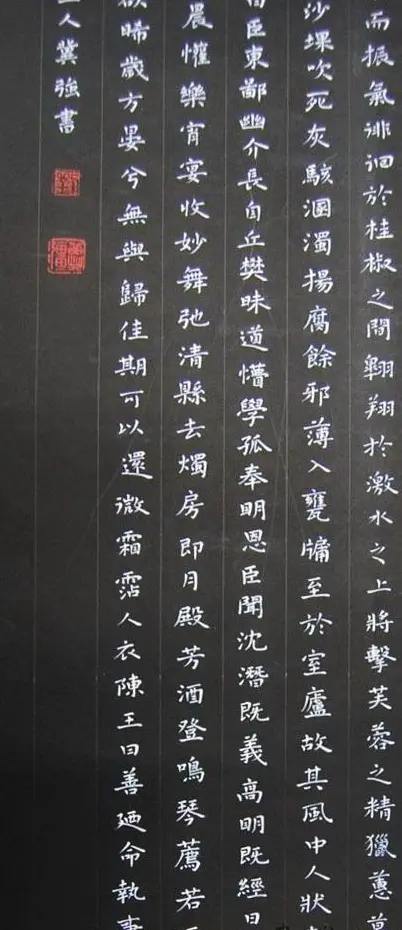 而振氣徘徊於桂椒之間翱翔於激水之上將擊芙蓉之精獵蕙
沙堁吹死灰駭溷濁揚腐餘邪薄入甕牖至於室廬故其風中人狀
臣東鄙幽介長自丘樊昧道懵學孤奉明恩臣聞沈潛既義高明既經日
晨懽樂宵宴收妙舞弛清縣去燭房即月殿芳酒登鳴琴薦若
晞歲方晏兮無與歸佳期可以還微霜霑人衣陳王曰善廼命執
人冀強書